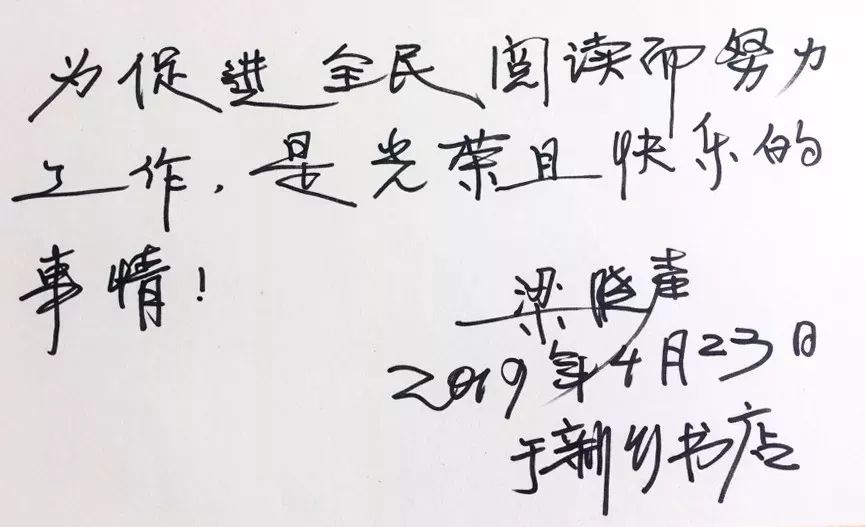 为促进全民阅读而努力
工作，是光荣且快乐的
事情！
梁晓声
2019年4月23日
于新乡书店